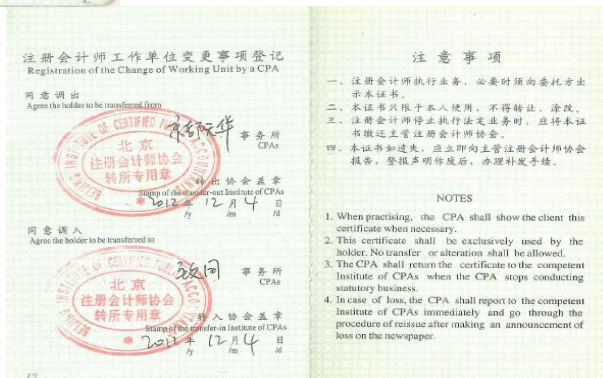 注册会计师工作单位变更事项登记
Registration of the Change of Working Unit by a CPA
同意调出
Agree the holder to be transferred from
京都天华 事务所
CPAs
BEIJING INSTITUTE OF CERTIFIED PUBLIC ACCOUNTANTS
北京
注册会计师协会
转所专用章
转出协会盖章
Stamp of the transfer-out Institute of CPAs
2012年 12月 4日
/y /m /d
同意调入
Agree the holder to be transferred to
致同 事务所
CPAs
BEIJING INSTITUTE OF CERTIFIED PUBLIC ACCOUNTANTS
北京
注册会计师协会
转所专用章
转入协会盖章
Stamp of the transfer-in Institute of CPAs
2012年 12月 4日
/y /m /d
注意事项
一、注册会计师执行业务，必要时须向委托方出
示本证书。
二、本证书只限于本人使用，不得转让、涂改。
三、注册会计师停止执行法定业务时，应将本证
书缴还主管注册会计师协会。
四、本证书如遗失，应立即向主管注册会计师协会
报告，登报声明作废后，办理补发手续。
NOTES
1. When practising, the CPA shall show the client this
certificate when necessary.
2. This certificate shall be exclusively used by the
holder. No transfer or alteration shall be allowed.
3. The CPA shall return the certificate to the competent
Institute of CPAs when the CPA stops conducting
statutory business.
4. In case of loss, the CPA shall report to the competent
Institute of CPAs immediately and go through the
procedure of reissue after making an announcement of
loss on the newspaper.